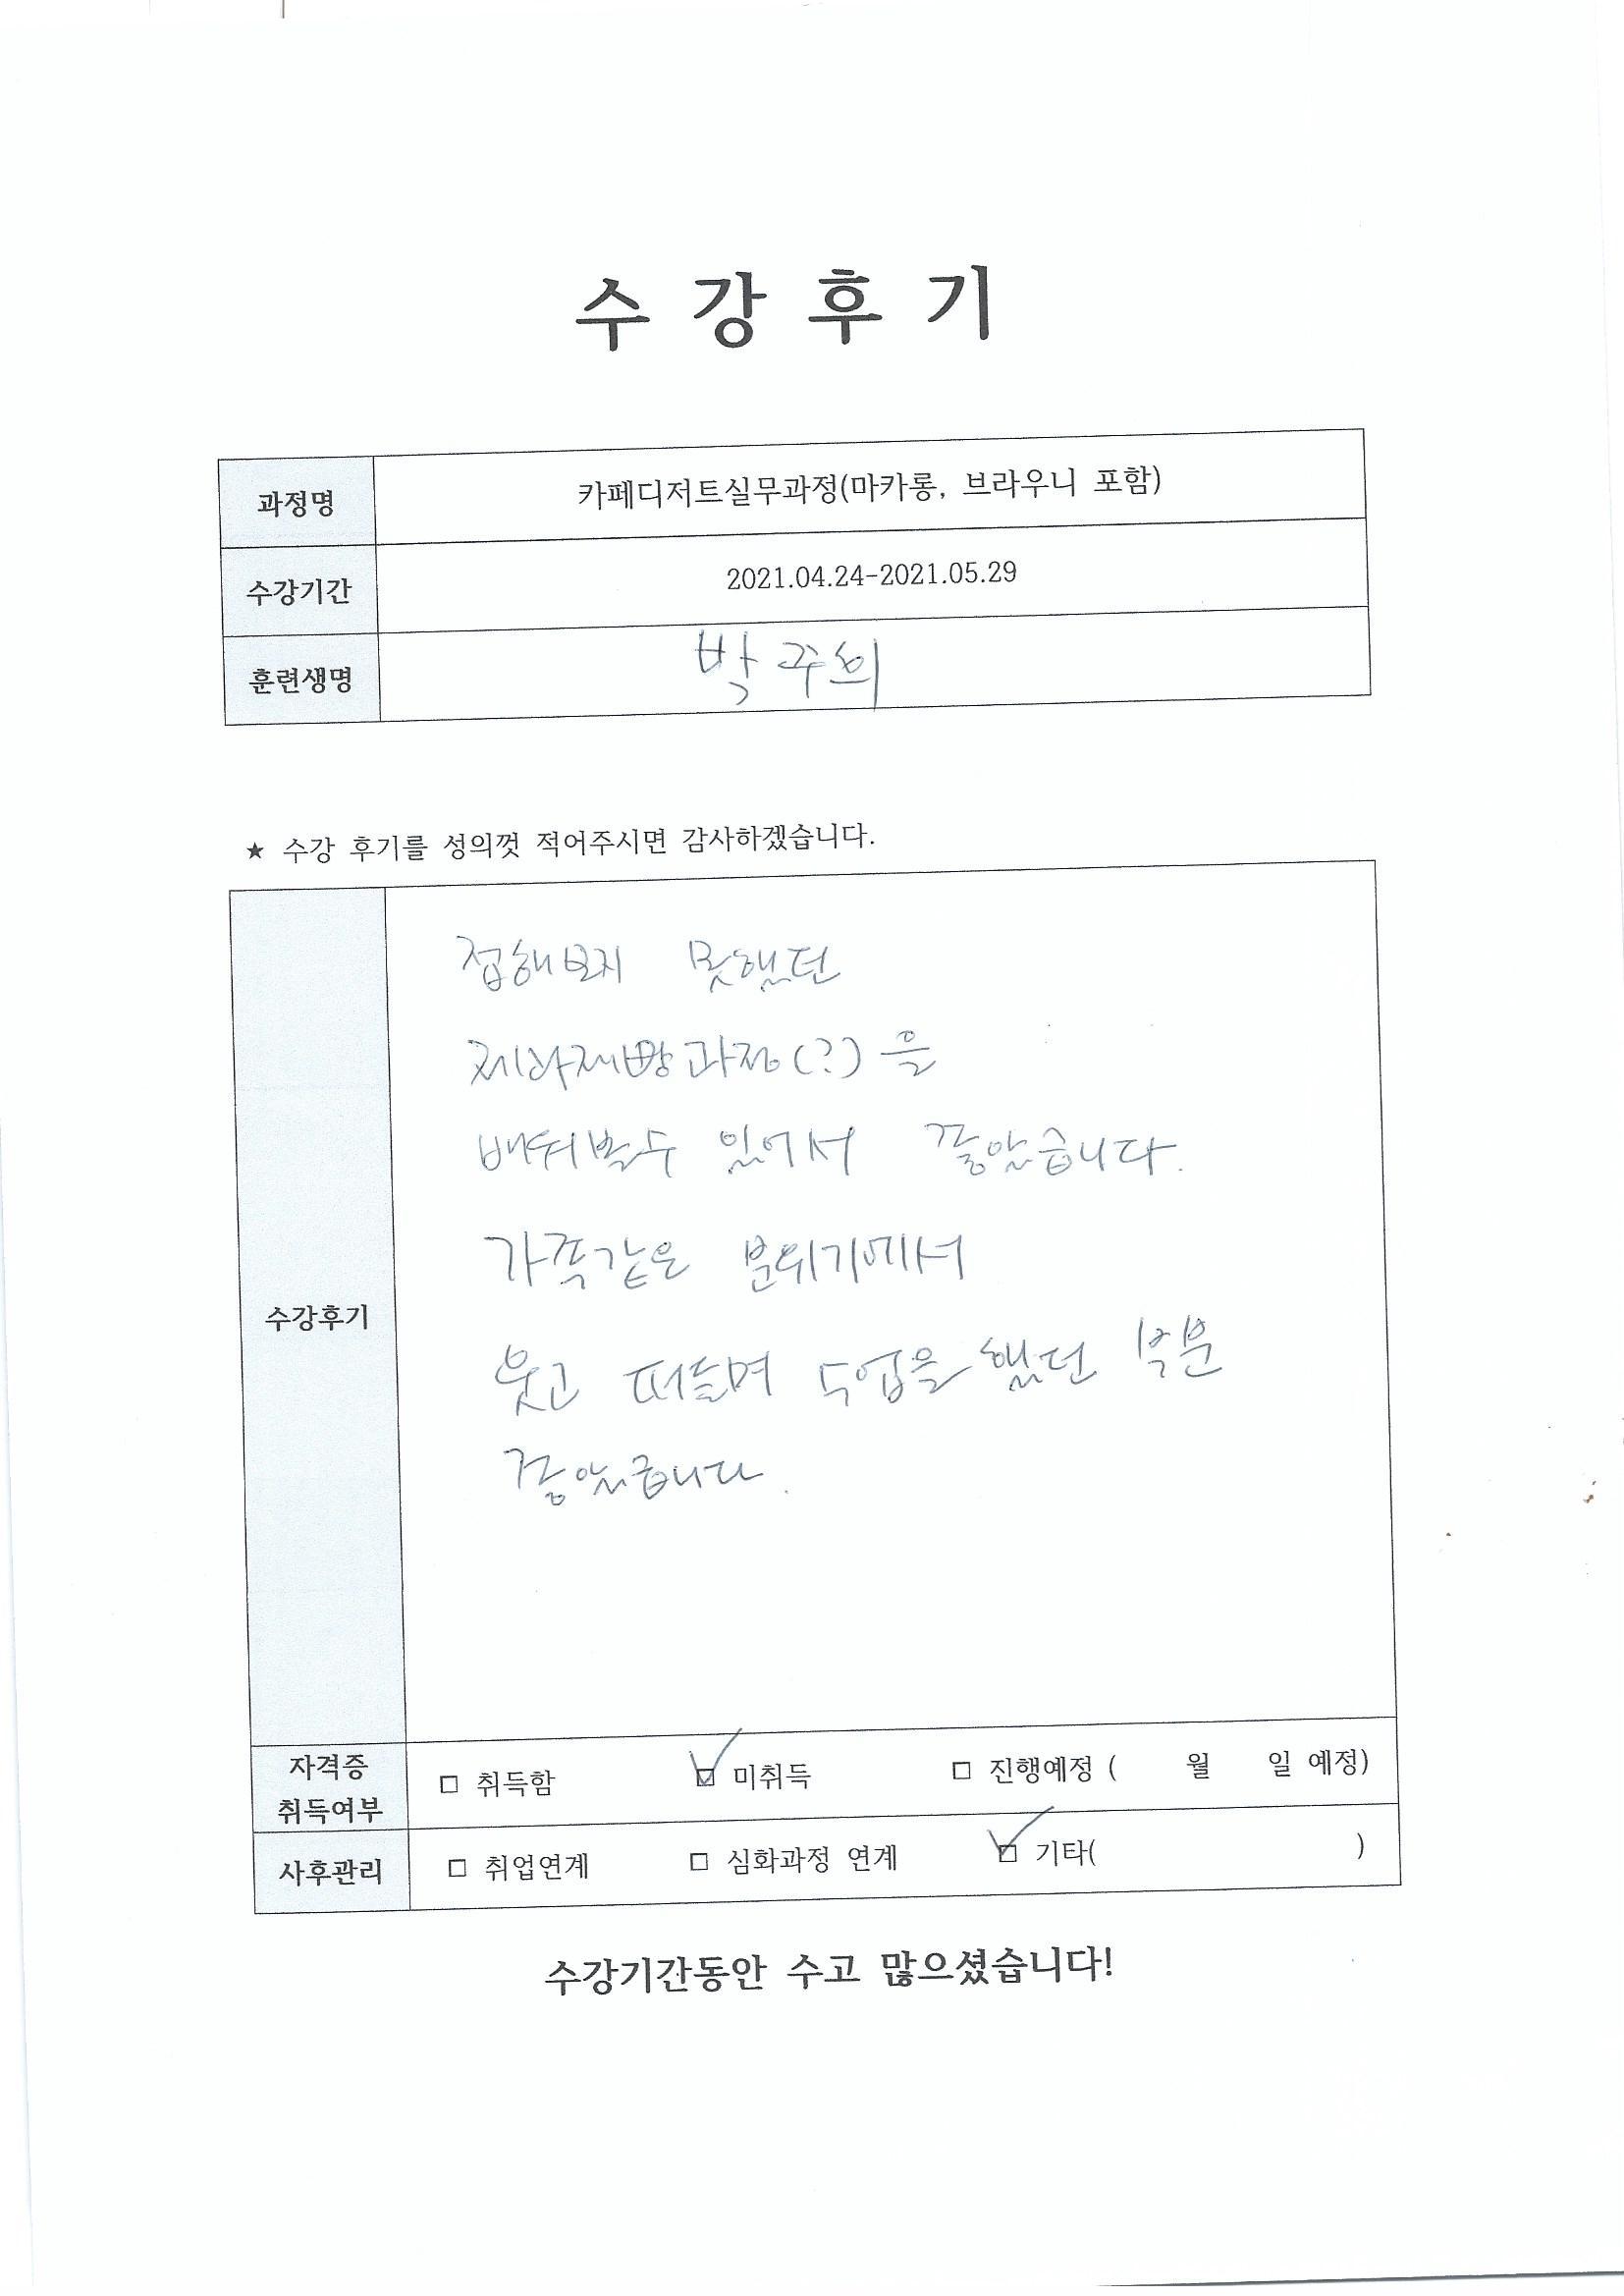 수 강 후 기
과정명 카페디저트실무과정(마카롱, 브라우니 포함)
수강기간 2021.04.24-2021.05.29
훈련생명 박주희
★ 수강 후기를 성의껏 적어주시면 감사하겠습니다.
수강후기
접해보지 못했던
제과제빵과정(?)을
배워볼수 있어서 좋았습니다.
가족같은 분위기에서
웃고 떠들며 수업을 했던 부분
좋았습니다.
자격증
취득여부
□ 취득함 ☑ 미취득 □ 진행예정 ( 월 일 예정)
사후관리 □ 취업연계 □ 심화과정 연계 ☑ 기타( )
수강기간동안 수고 많으셨습니다!